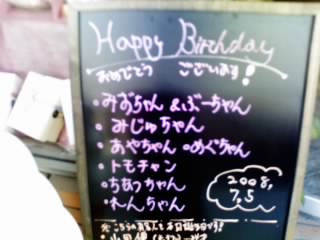 Happy Birthday
おめでとう ございます!
・みおちゃん & ぶーちゃん
・みじゅちゃん
・あやちゃん ・めぐちゃん
・トモチャン
・ちもっちゃん
・れんちゃん
2008,
7,5